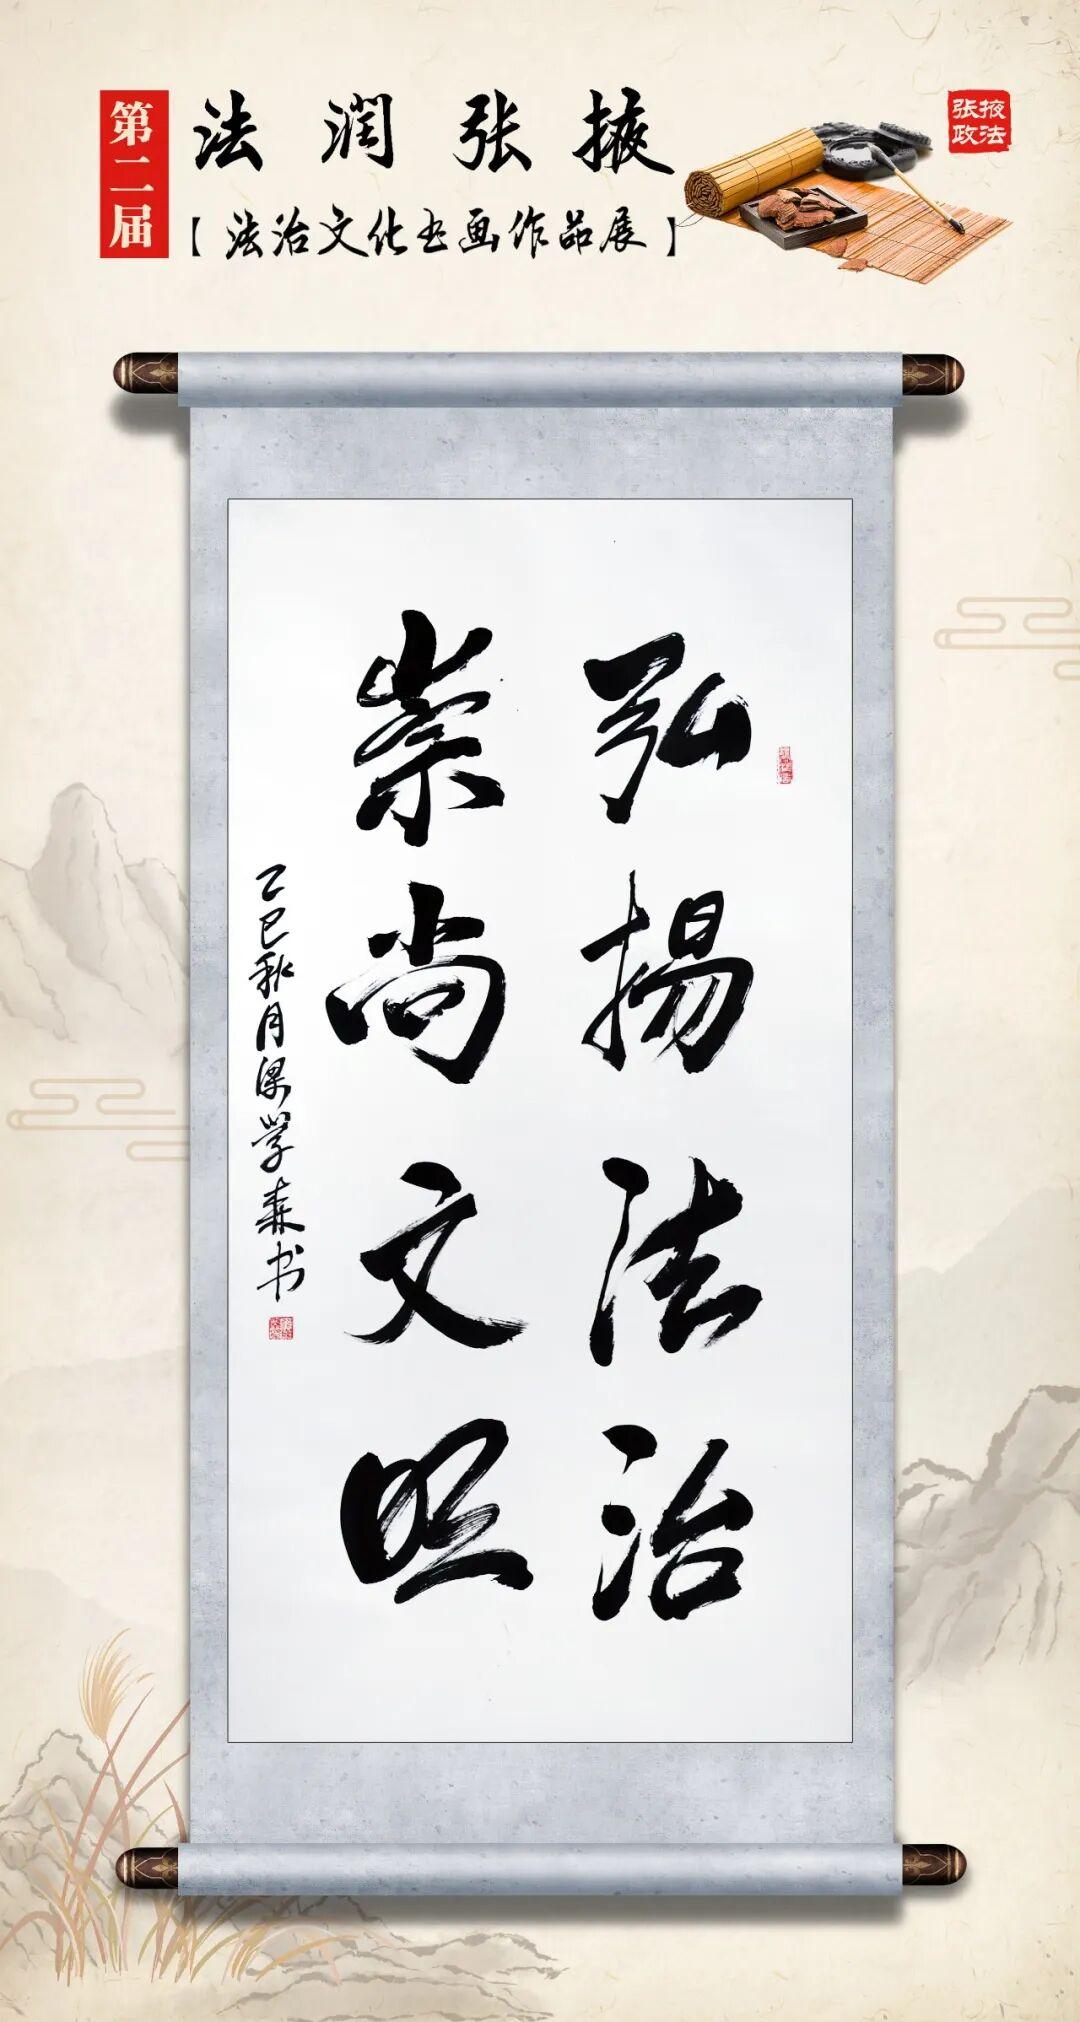 第二届
法润张掖
【法治文化书画作品展】
张掖政法
弘扬法治
崇尚文明
乙巳秋月梁学森书